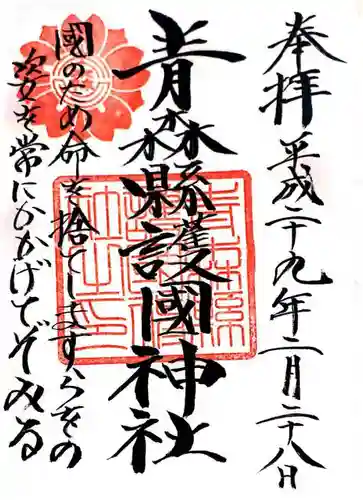 奉拝 平成二十九年二月二十八日
青森縣護國神社
國のため命を捨てしますらをの
姿を常にかかげてぞみる
青森縣護國神社之印